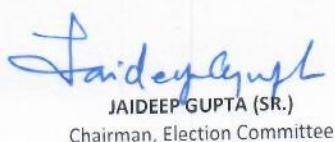 Jaideep Gupta
JAIDEEP GUPTA (SR.)
Chairman, Election Committee